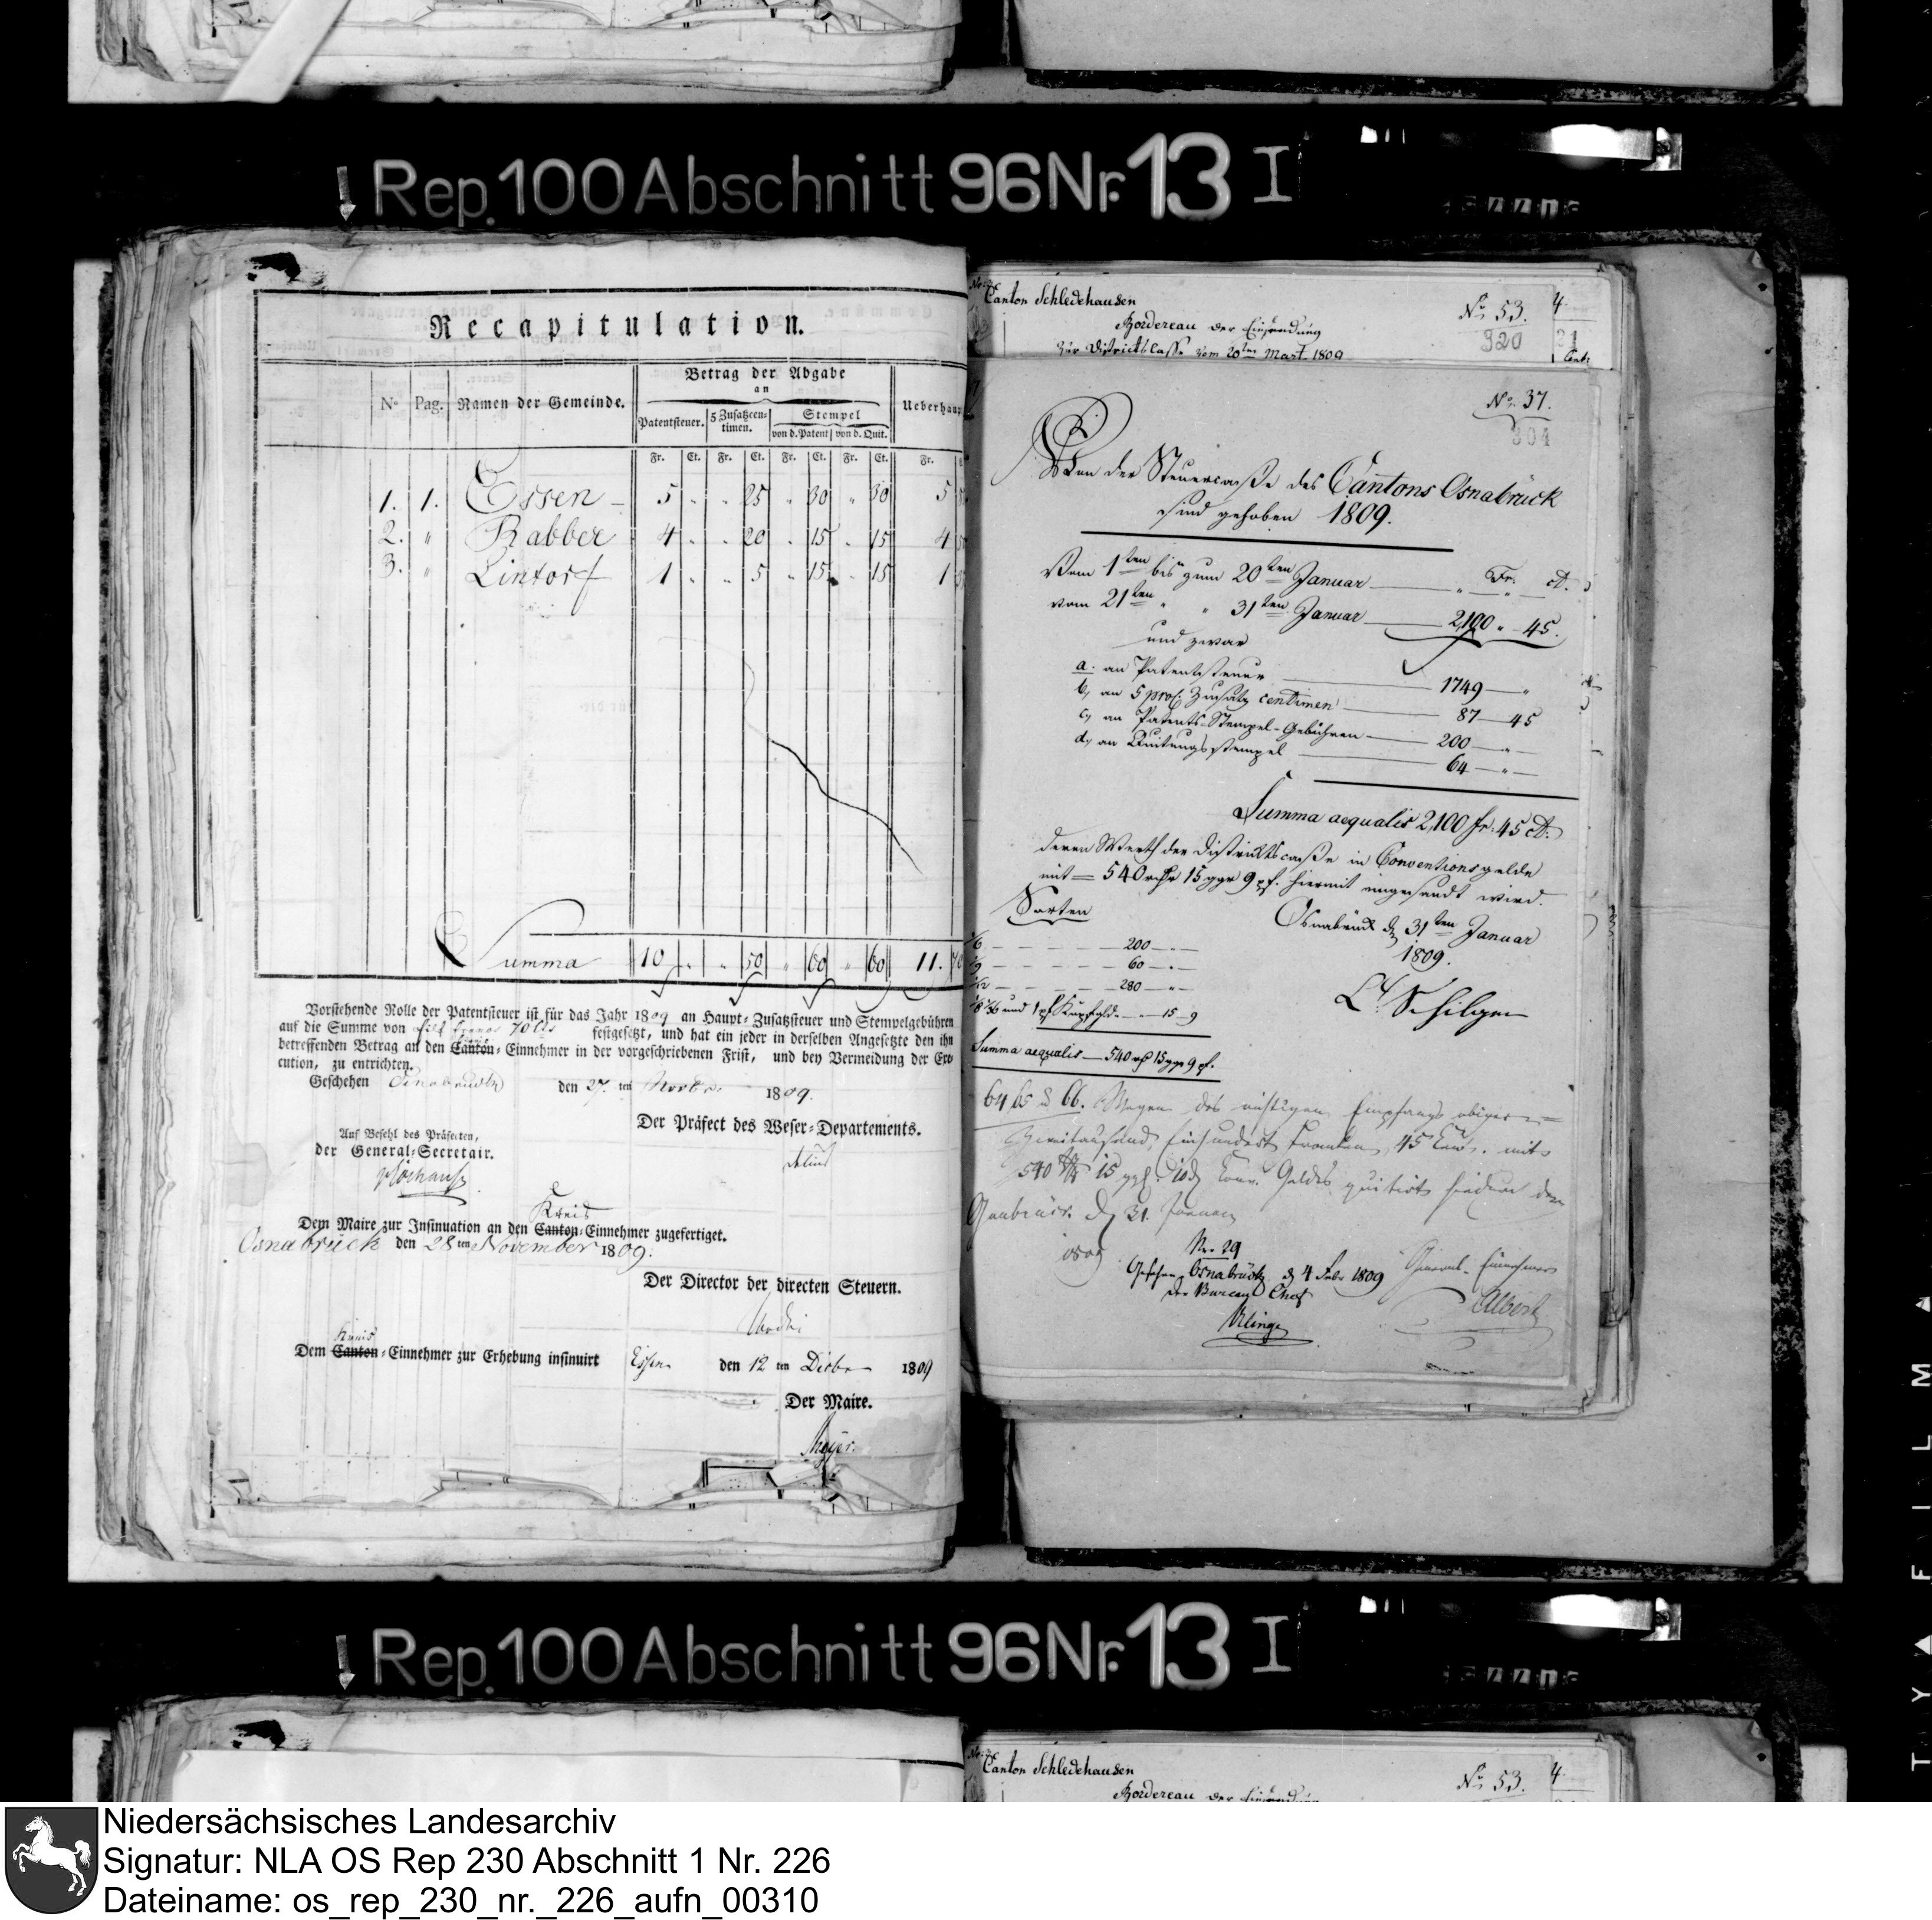 Rep. 100 Abschnitt 96 Nr. 13 I
Recapitulation.
Nº Pag. Namen der Gemeinde. Betrag der Abgabe an Ueberhaup
Patentsteuer. 5 Zusatzcen-timen. Stempel
von d. Patent von d. Quit.
Fr. Ct. Fr. Ct. Fr. Ct. Fr. Ct. Fr.
1. 1. Essen 5 " " 25 " 30 " 30 5
2. " Rabber 4 " " 20 " 15 " 15 4
3. " Lintorf 1 " " 5 " 15 " 15 1
Summa 10 " " 50 " 60 " 60 11. 70
Vorstehende Rolle der Patentsteuer ist für das Jahr 1809 an Haupt-Zusatzsteuer und Stempelgebühren
auf die Summe von eilf Francs 70 Cts festgesetzt, und hat ein jeder in derselben Angesetzte den ihn
betreffenden Betrag an den Canton-Einnehmer in der vorgeschriebenen Frist, und bey Vermeidung der Exe-
cution, zu entrichten.
Geschehen Osnabrück den 27. ten Novbr. 1809.
Der Präfect des Weser-Departements.
Auf Befehl des Präfecten,
der General-Secretair.
Kreis
Dem Maire zur Insinuation an den Canton-Einnehmer zugefertiget.
Osnabrück den 28 ten November 1809.
Der Director der directen Steuern.
Kreis
Dem Canton-Einnehmer zur Erhebung insinuirt Essen den 12 ten Decbr 1809
Der Maire.
Meyer.
Canton Schledehausen
Nº 53. 4
Bordereau der Einsendung
320 21
zur Districtscasse vom 20ten Mart. 1809
Cent.
Nº. 37.
304
Von der Steuercasse des Cantons Osnabrück
sind gehoben 1809.
Fr. Ct.
Vom 1ten bis zum 20ten Januar " "
vom 21ten " " 31ten Januar 2,100 " 45.
und zwar
a. an Patentsteuer 1749 "
b, an 5 proc. Zusatz centimen 87 45
c, an Patents-Stempel-Gebühren 200 "
d, an Quitungsstempel 64 "
Summa aequalis 2,100 fr. 45 Ct.
deren Werth der Districtscasse in Conventionsgelde
mit 540 rthr 15 ggr 9 pf. hiermit eingesandt wird.
Sorten
Osnabrück d 31ten Januar
1809.
200
60
280
und 1 pf Kupfergeld 15 9
Schilgen
Summa aequalis 540 rthr 15 ggr 9 pf.
64 65 & 66. Wegen des richtigen Empfangs obiger
Zweitausend Einhundert Franken 45 Cent. mit
540 15 ggr. 10 Conv. Geldes quitirt hiedurch der
Osnabrück d 31. Januar
1809
General-Einnehmer
Albert
Nr. 29
Gesehen Osnabrück d 4 Febr 1809
der Bureau Chef
Rep. 100 Abschnitt 96 Nr. 13 I
Canton Schledehausen
Nº 53. 4
Bordereau der Einsendung
Niedersächsisches Landesarchiv
Signatur: NLA OS Rep 230 Abschnitt 1 Nr. 226
Dateiname: os_rep_230_nr._226_aufn_00310